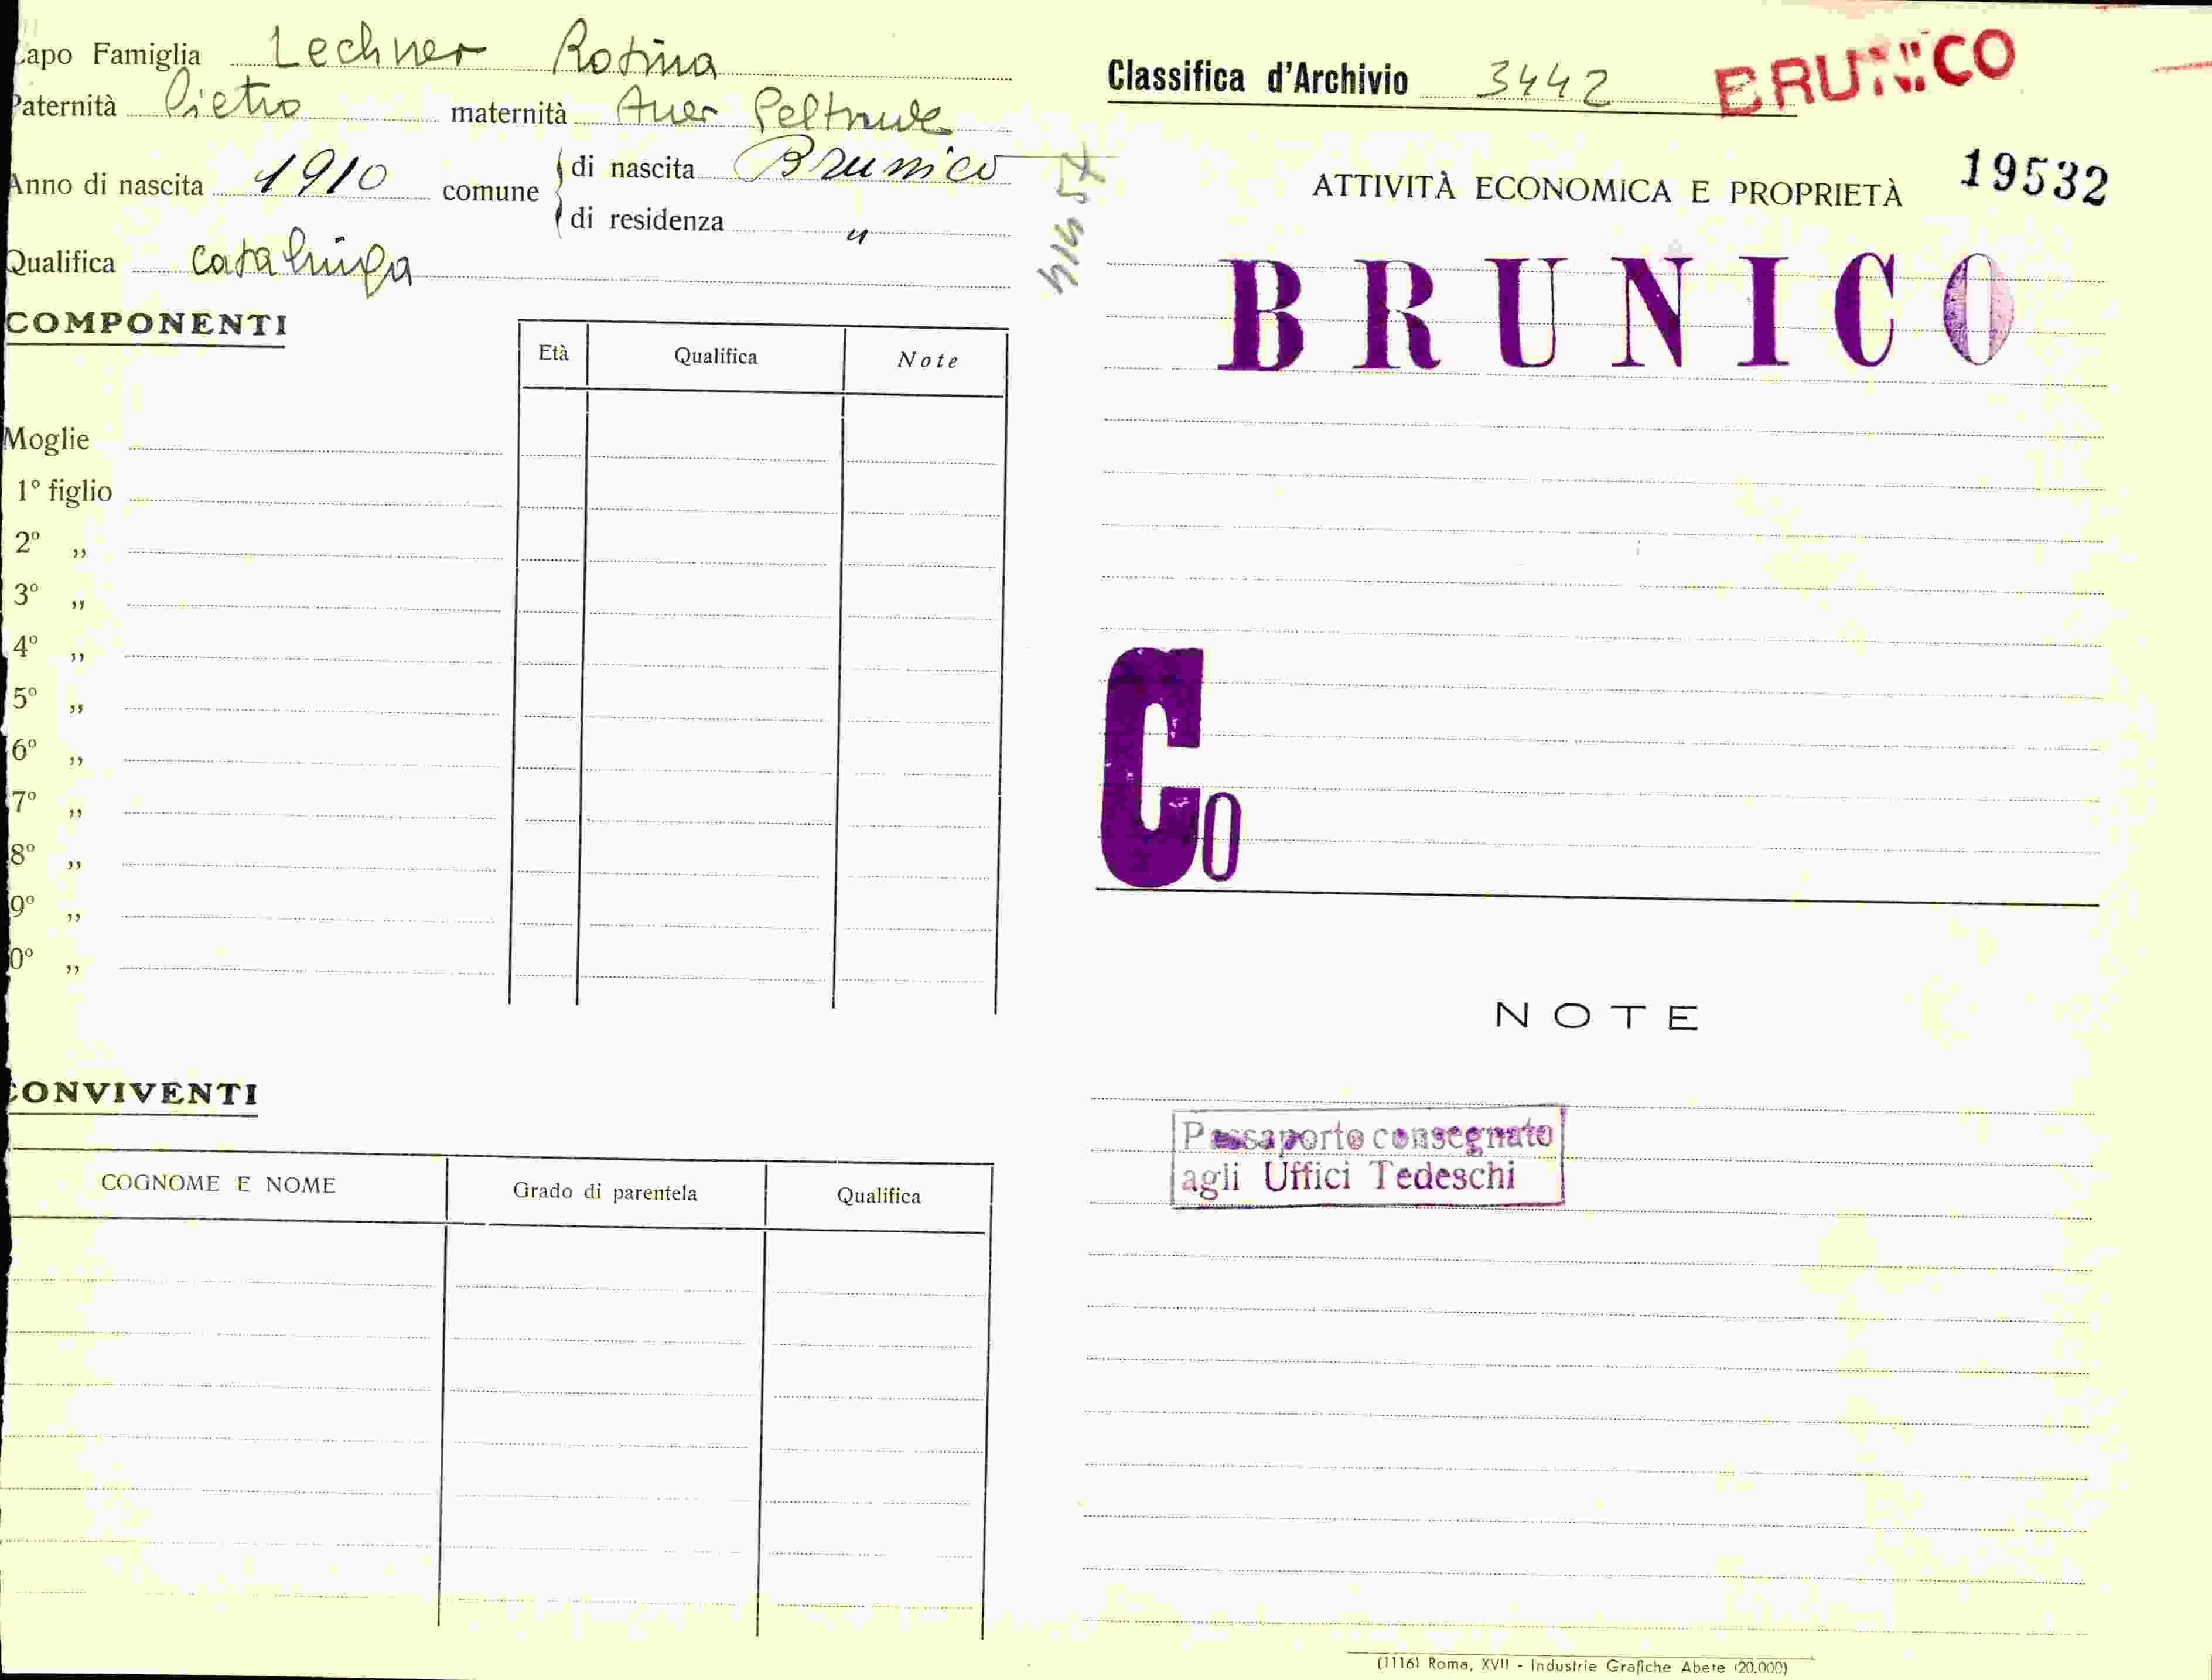 Capo Famiglia Lechner Rosina
Paternità Pietro maternità Auer Geltrude
Anno di nascita 1910 comune di nascita Brunico
di residenza "
Qualifica casalinga
COMPONENTI
Età Qualifica Note
Moglie
1° figlio
2° ,,
3° ,,
4° ,,
5° ,,
6° ,,
7° ,,
8° ,,
9° ,,
0° ,,
CONVIVENTI
COGNOME E NOME Grado di parentela Qualifica
Classifica d'Archivio 3442 BRUNICO
ATTIVITÀ ECONOMICA E PROPRIETÀ 19532
BRUNICO
Co
NOTE
Passaporto consegnato
agli Uffici Tedeschi
(1116) Roma, XVII - Industrie Grafiche Abete (20.000)